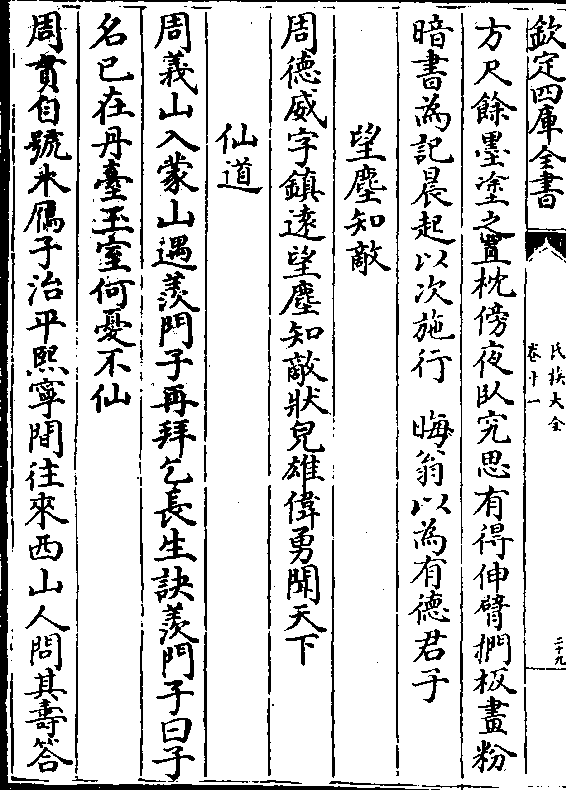 欽定四庫全書
氏族大全
卷十一
二十九
方尺餘墨塗之置枕傍夜臥究思有得伸臂捫板畫粉
暗書為記晨起以次施行　晦翁以為有德君子
望塵知敵
周德威字鎮遠望塵知敵狀皃雄偉勇聞天下
仙道
周義山入蒙山遇羨門子再拜乞長生訣羨門子曰子
名已在丹臺玉室何憂不仙
周貫自號木鴈子治平熙寧間往來西山人問其壽答